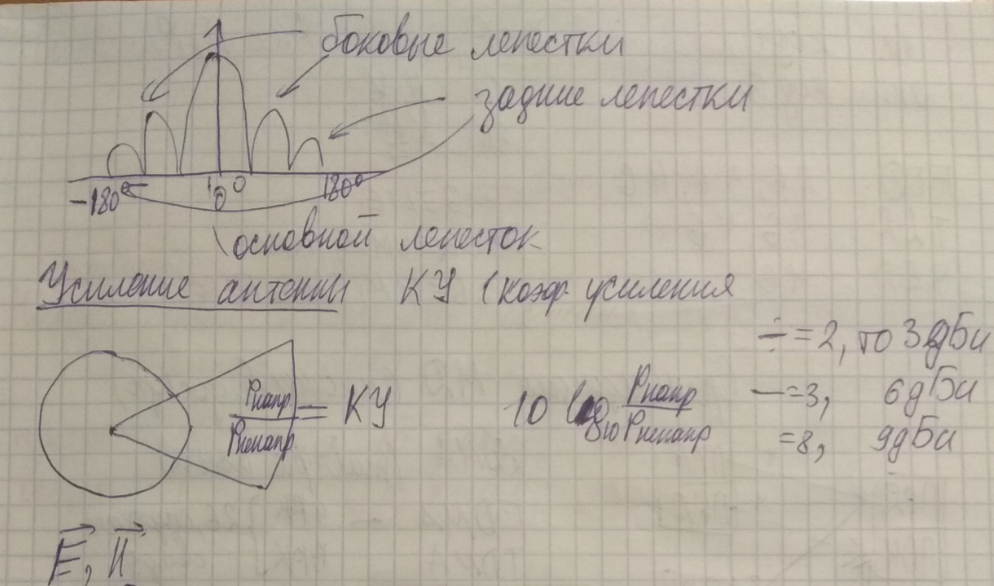 боковые лепестки
задние лепестки
-180° 0° 180°
основной лепесток
Усиление антенны КУ (коэф. усиления
÷ = 2, то 3 дБи
Pнапр / Pненапр = КУ 10 log10 Pнапр / Pненапр — = 3, 6 дБи
= 8, 9 дБи
E⃗, H⃗